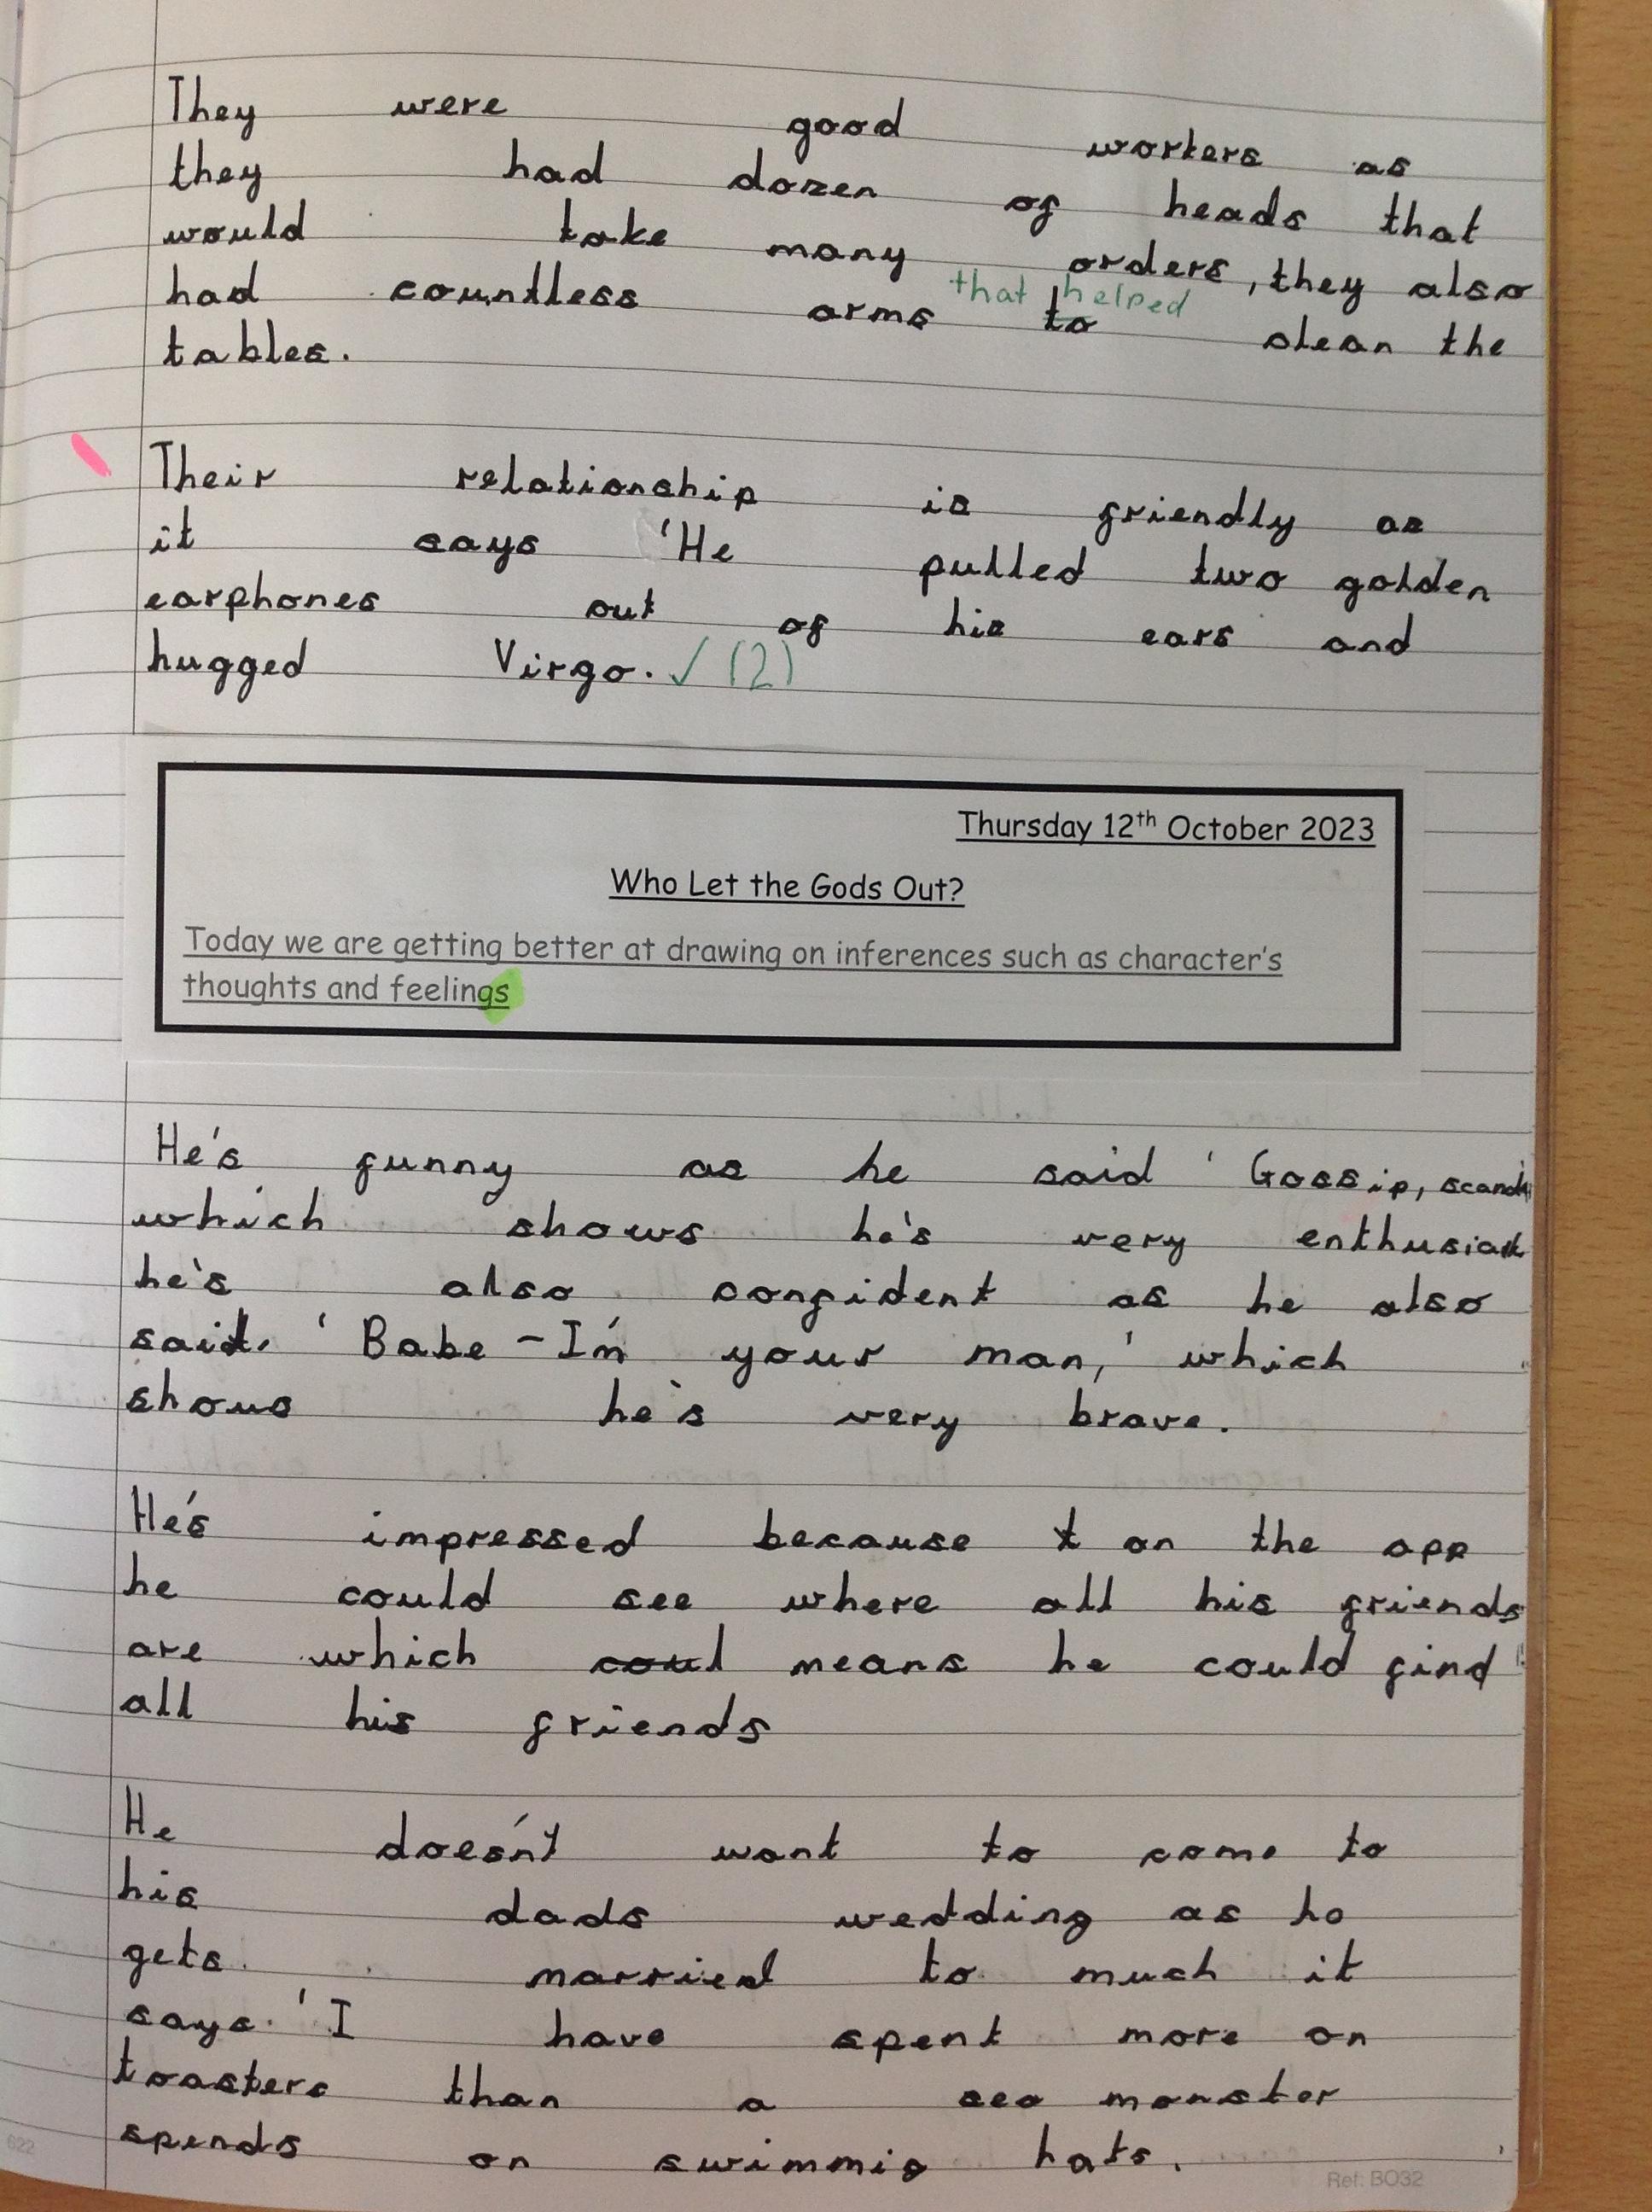 They were good workers as
they had dozen of heads that
would take many orders, they also
that helped
had countless arms to clean the
tables.
Their relationship is friendly as
it says 'He pulled two golden
earphones out of his ears and
hugged Virgo. ✓ (2)
Thursday 12th October 2023
Who Let the Gods Out?
Today we are getting better at drawing on inferences such as character's
thoughts and feelings
He's funny as he said ' Gossip,
which shows he's very
he's also confident as he also
said. ' Babe - I'm your man,' which
shows he's very brave.
He's impressed because on the app
he could see where all his friends
are which coul means he could find
all his friends
He doesn't want to come to
his dads wedding as he
gets married to much it
says. ' I have spent more on
toasters than a sea monster
spends on swimmig hats.
622
Ref: BO32